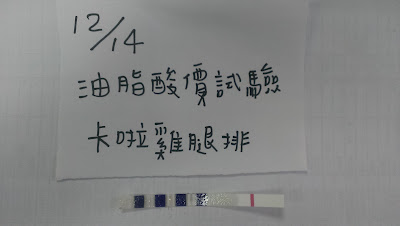 12/14
油脂酸價試驗
卡啦雞腿排